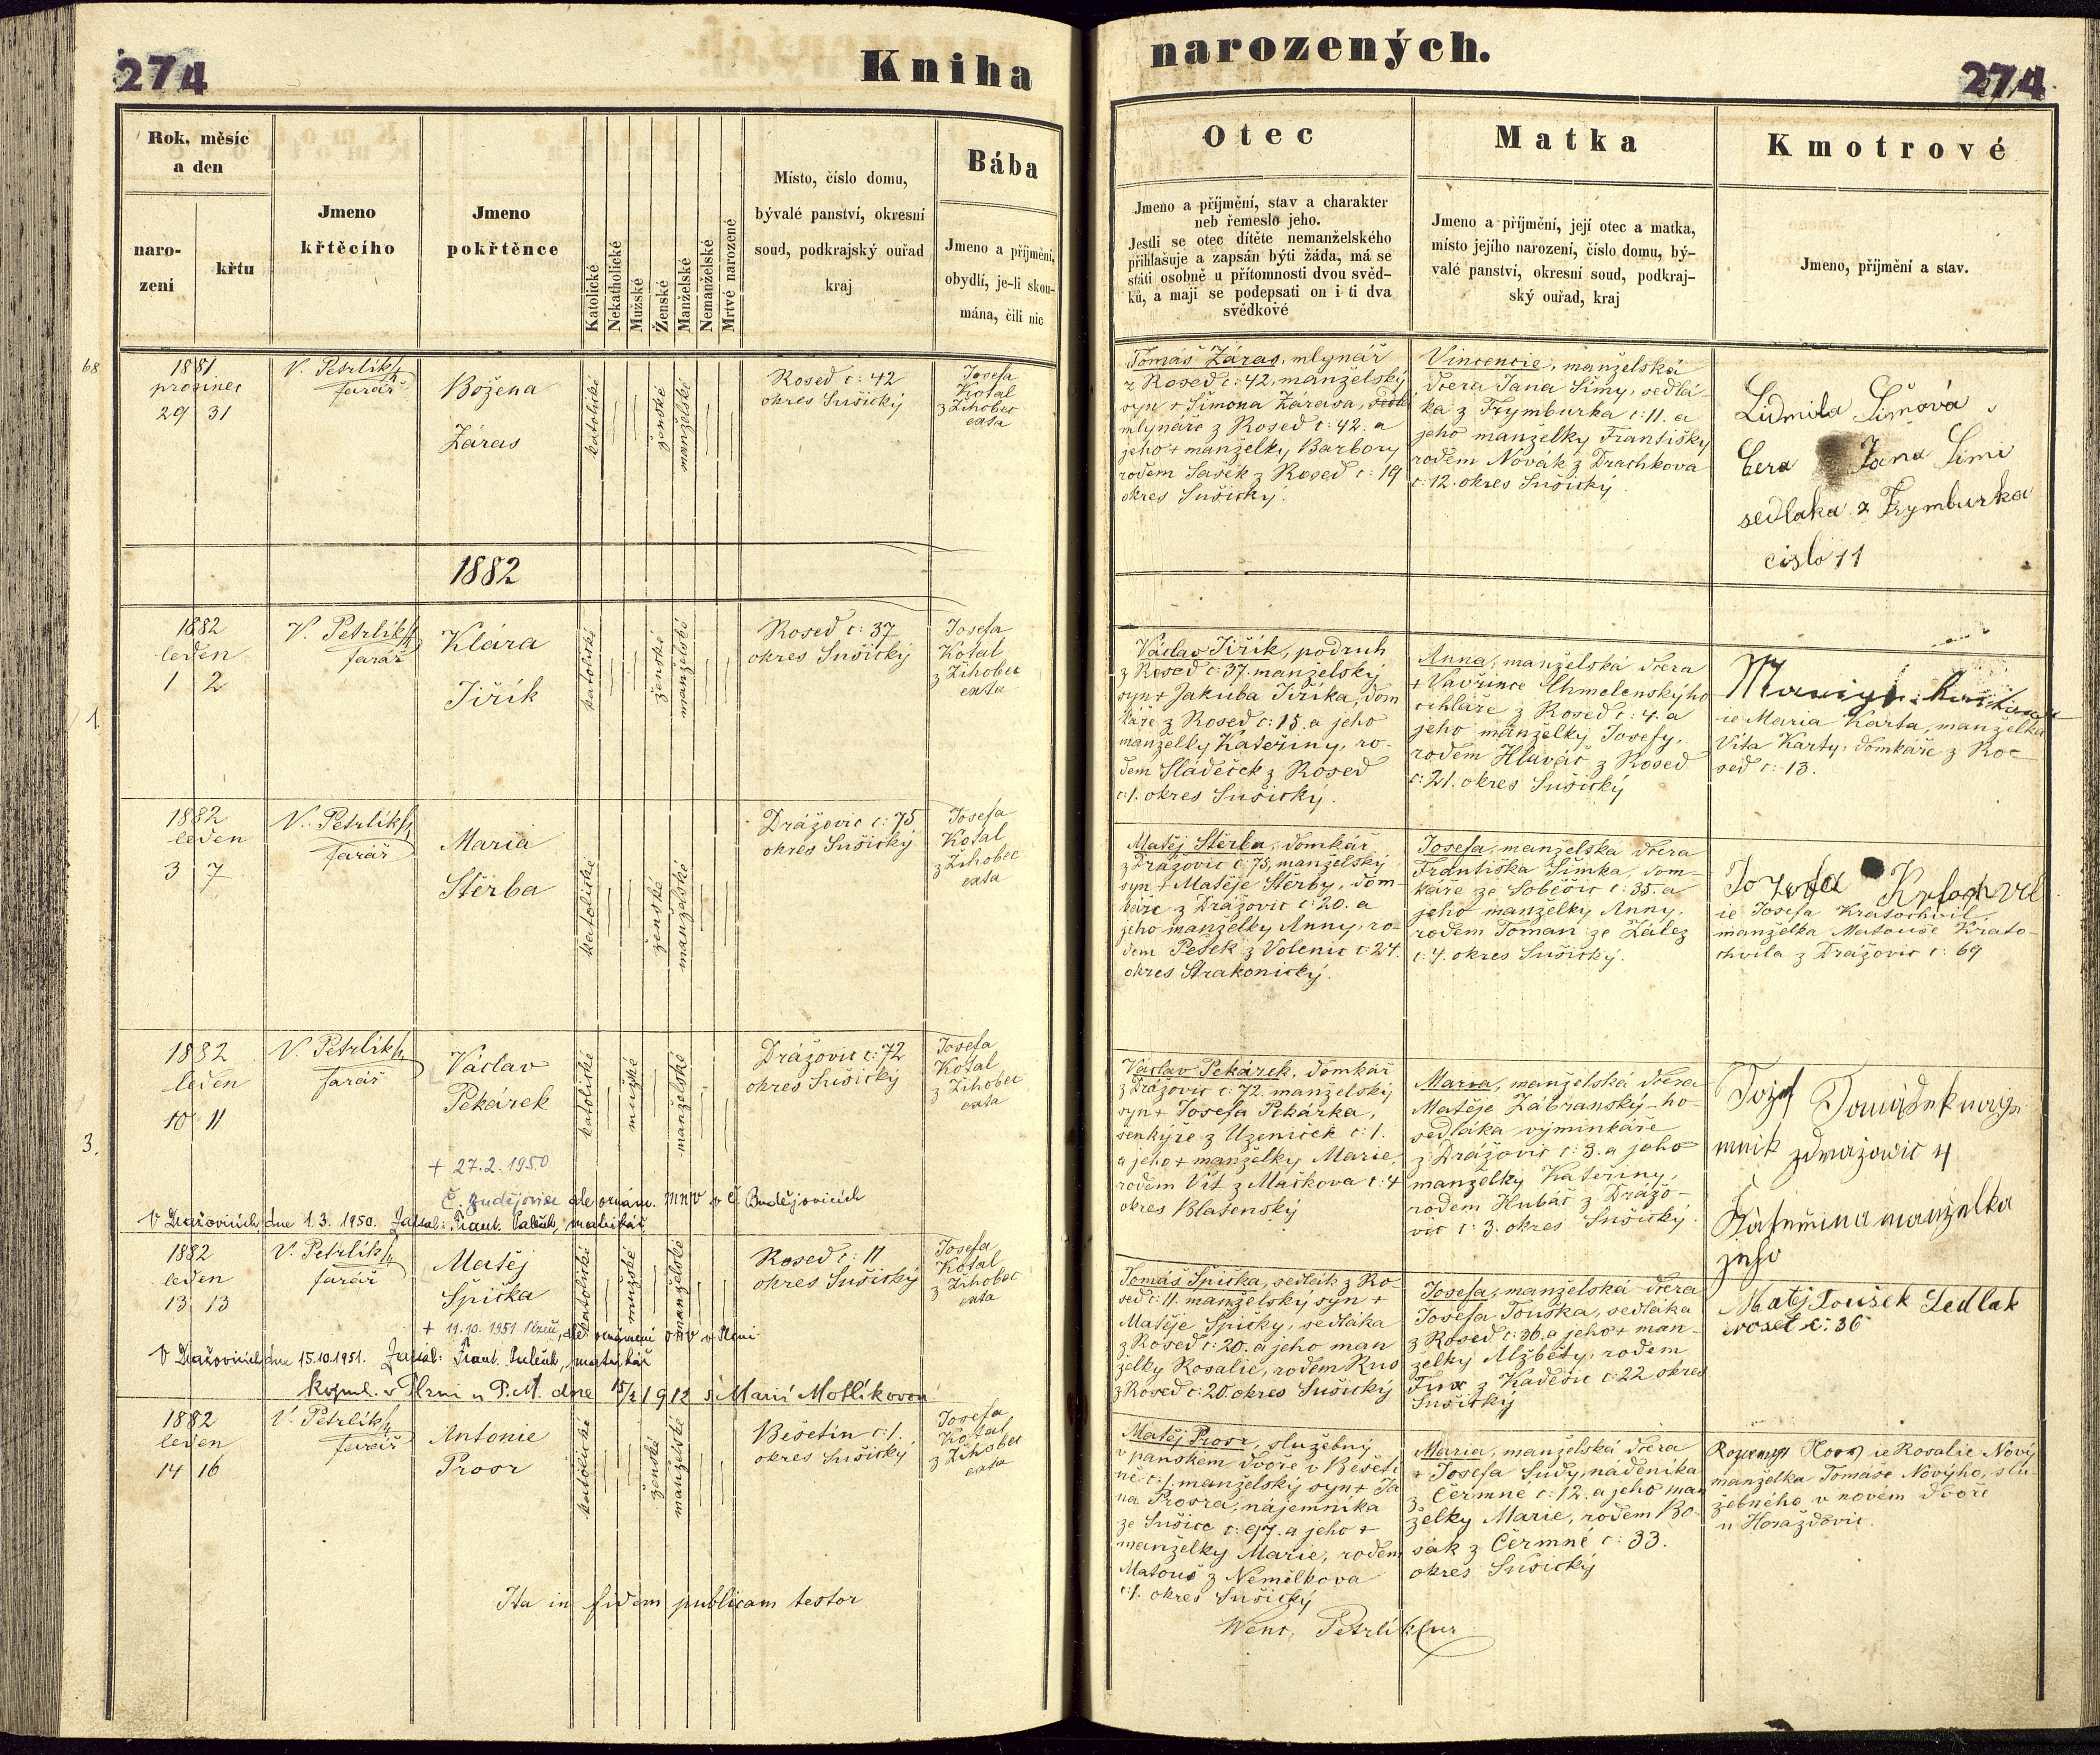 274
Kniha
narozených.
274
Rok, měsíc
a den
naro-
zení
křtu
Jmeno
křtěcího
Jmeno
pokřtěnce
Katolické
Nekatholické
Mužské
Ženské
Manželské
Nemanželské
Mrtvé narozené
Místo, číslo domu,
bývalé panství, okresní
soud, podkrajský ouřad
kraj
Bába
Jmeno a příjmění,
obydlí, je-li skou-
mána, čili nic
Otec
Jmeno a příjmění, stav a charakter
neb řemeslo jeho.
Jestli se otec dítěte nemanželského
přihlašuje a zapsán býti žáda, má se
státi osobně u přítomnosti dvou svěd-
ků, a mají se podepsati on i ti dva
svědkové
Matka
Jmeno a příjmění, její otec a matka,
místo jejího narození, číslo domu, bý-
valé panství, okresní soud, podkraj-
ský ouřad, kraj
Kmotrové
Jmeno, příjmění a stav.
68
1881
prosinec
29 31
V. Petrlík
farář
Božena
Záras
katolické
ženské
manželské
Rosed č: 42
okres Sušický
Josefa
Kotal
z Žihobec
exta
Tomáš Záras, mlynář
z Rosed č: 42, manželský
syn + Šimona Zárasa,
mlynáře z Rosed č: 42. a
jeho + manželky Barbory
rodem Sašek z Rosed č: 19
okres Sušický.
Vincencie, manželská
dcera Jana Šimy, sedlá-
ka z Frymburka č: 11. a
jeho manželky Františky
rodem Novák z Drachkova
č: 12. okres Sušický.
Lidmila Šimová
Cera Jana Šimi
sedlaka z Frymburka
cislo 11
1882
1.
1882
leden
1 2
V. Petrlík
farář
Klára
Jiřík
katolické
ženské
manželské
Rosed č: 37
okres Sušický
Josefa
Kotal
z Žihobec
exta
Václav Jiřík, podruh
z Rosed č: 37. manželský
syn + Jakuba Jiříka, dom
káře z Rosed č: 15. a jeho
manželky Kateřiny, ro-
dem Sládeček z Rosed
č: 1. okres Sušický.
Anna, manželská dcera
+ Vavřince Chmelenskýho
cihláře z Rosed č: 4. a
jeho manželky Josefy,
rodem Hlaváč z Rosed
č: 21. okres Sušický
ie Maria Karta, manželka
Víta Karty, domkáře z Ro-
sed č: 13.
1882
leden
3 7
V. Petrlík
farář
Maria
Štěrba
katolické
ženské
manželské
Drážovic č: 75
okres Sušický
Josefa
Kotal
z Žihobec
exta
Matěj Štěrba, domkář
z Drážovic č: 75, manželský
syn + Matěje Štěrby, dom-
káře z Drážovic č: 20. a
jeho manželky Anny, ro-
dem Pešek z Volenic č: 24.
okres Strakonický.
Josefa, manželská dcera
Františka Šimka, dom-
káře ze Soběšic č: 35. a
jeho manželky Anny,
rodem Toman ze Zález
č: 4. okres Sušický.
ie Josefa Kratochvil,
manželka Matouše Krato-
chvila z Drážovic č: 69
3.
1882
leden
10 11
V. Petrlík
farář
Václav
Pekárek
katolické
mužské
manželské
Drážovic č: 72
okres Sušický
Josefa
Kotal
z Žihobec
exta
Václav Pekárek, domkář
z Drážovic č: 72. manželský
syn + Josefa Pekárka,
šenkýře z Uzeniček č: 1.
a jeho + manželky Marie,
rodem Vít z Mačkova č: 4
okres Blatenský
Maria, manželská dcera
Matěje Zábranský-ho
sedláka výminkáře
z Drážovic č: 3. a jeho
manželky Kateřiny,
rodem Hubač z Drážo-
vic č: 3. okres Sušický.
manželka
+ 27. 2. 1950
Č. Budějovice dle oznám. MNV v Č. Budějovicích
V Dražovicích dne 1. 3. 1950. Zapsal: Frant. matrikář
1882
leden
13 13
V. Petrlík
farář
Matěj
Špička
katolické
mužské
manželské
Rosed č: 11
okres Sušický
Josefa
Kotal
z Žihobec
exta
Tomáš Špička, sedlák z Ro-
sed č: 11. manželský syn +
Matěje Špičky, sedláka
z Rosed č: 20. a jeho man
želky Rosalie, rodem Rus
z Rosed č: 20. okres Sušický
Josefa, manželská dcera
Josefa Touška, sedláka
z Rosed č: 36. a jeho + man-
želky Alžběty, rodem
Fux z Kadešic č: 22 okres
Sušický
Matěj Toušek Sedlak
č: 36
+ 11. 10. 1951 Plzeň, dle oznámení v Plzni.
V Dražovicích dne 15. 10. 1951. Zapsal: Frant. matrikář
kopul. v Plzni u P. M. dne 15/2 1912 s Marií Motlíkovou
1882
leden
14 16
V. Petrlík
farář
Antonie
Prosr
katolické
ženské
manželské
Běšetín č: 1.
okres Sušický
Josefa
Kotal
z Žihobec
exta
Matěj Prosr, služebný
v panském dvoře v Běšetí-
ně č: 1. manželský syn + Ja
na Prosra, nájemníka
ze Sušice č: 97. a jeho +
manželky Marie, rodem
Matouš z Nemělkova
č: 1. okres Sušický
Maria, manželská dcera
+ Josefa Sudy, nádeníka
z Čermné č: 12. a jeho man
želky Marie, rodem Bo-
sák z Čermné č: 33.
okres Sušický
ie Rosalie Nový
manželka Tomáše Novýho, slu-
žebného v novém dvoře
u Horažďovic.
Ita in fidem publicam testor
Wenc. Petrlík